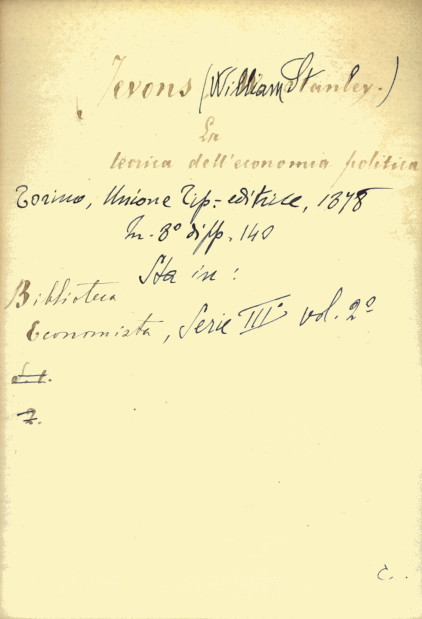 Jevons (William Stanley.)
La
teorica dell'economia politica
Torino, Unione Tip.-editrice, 1878
In-8º di pp. 140
Sta in:
Biblioteca
Economista, Serie IIIª vol. 2º
2.
C..